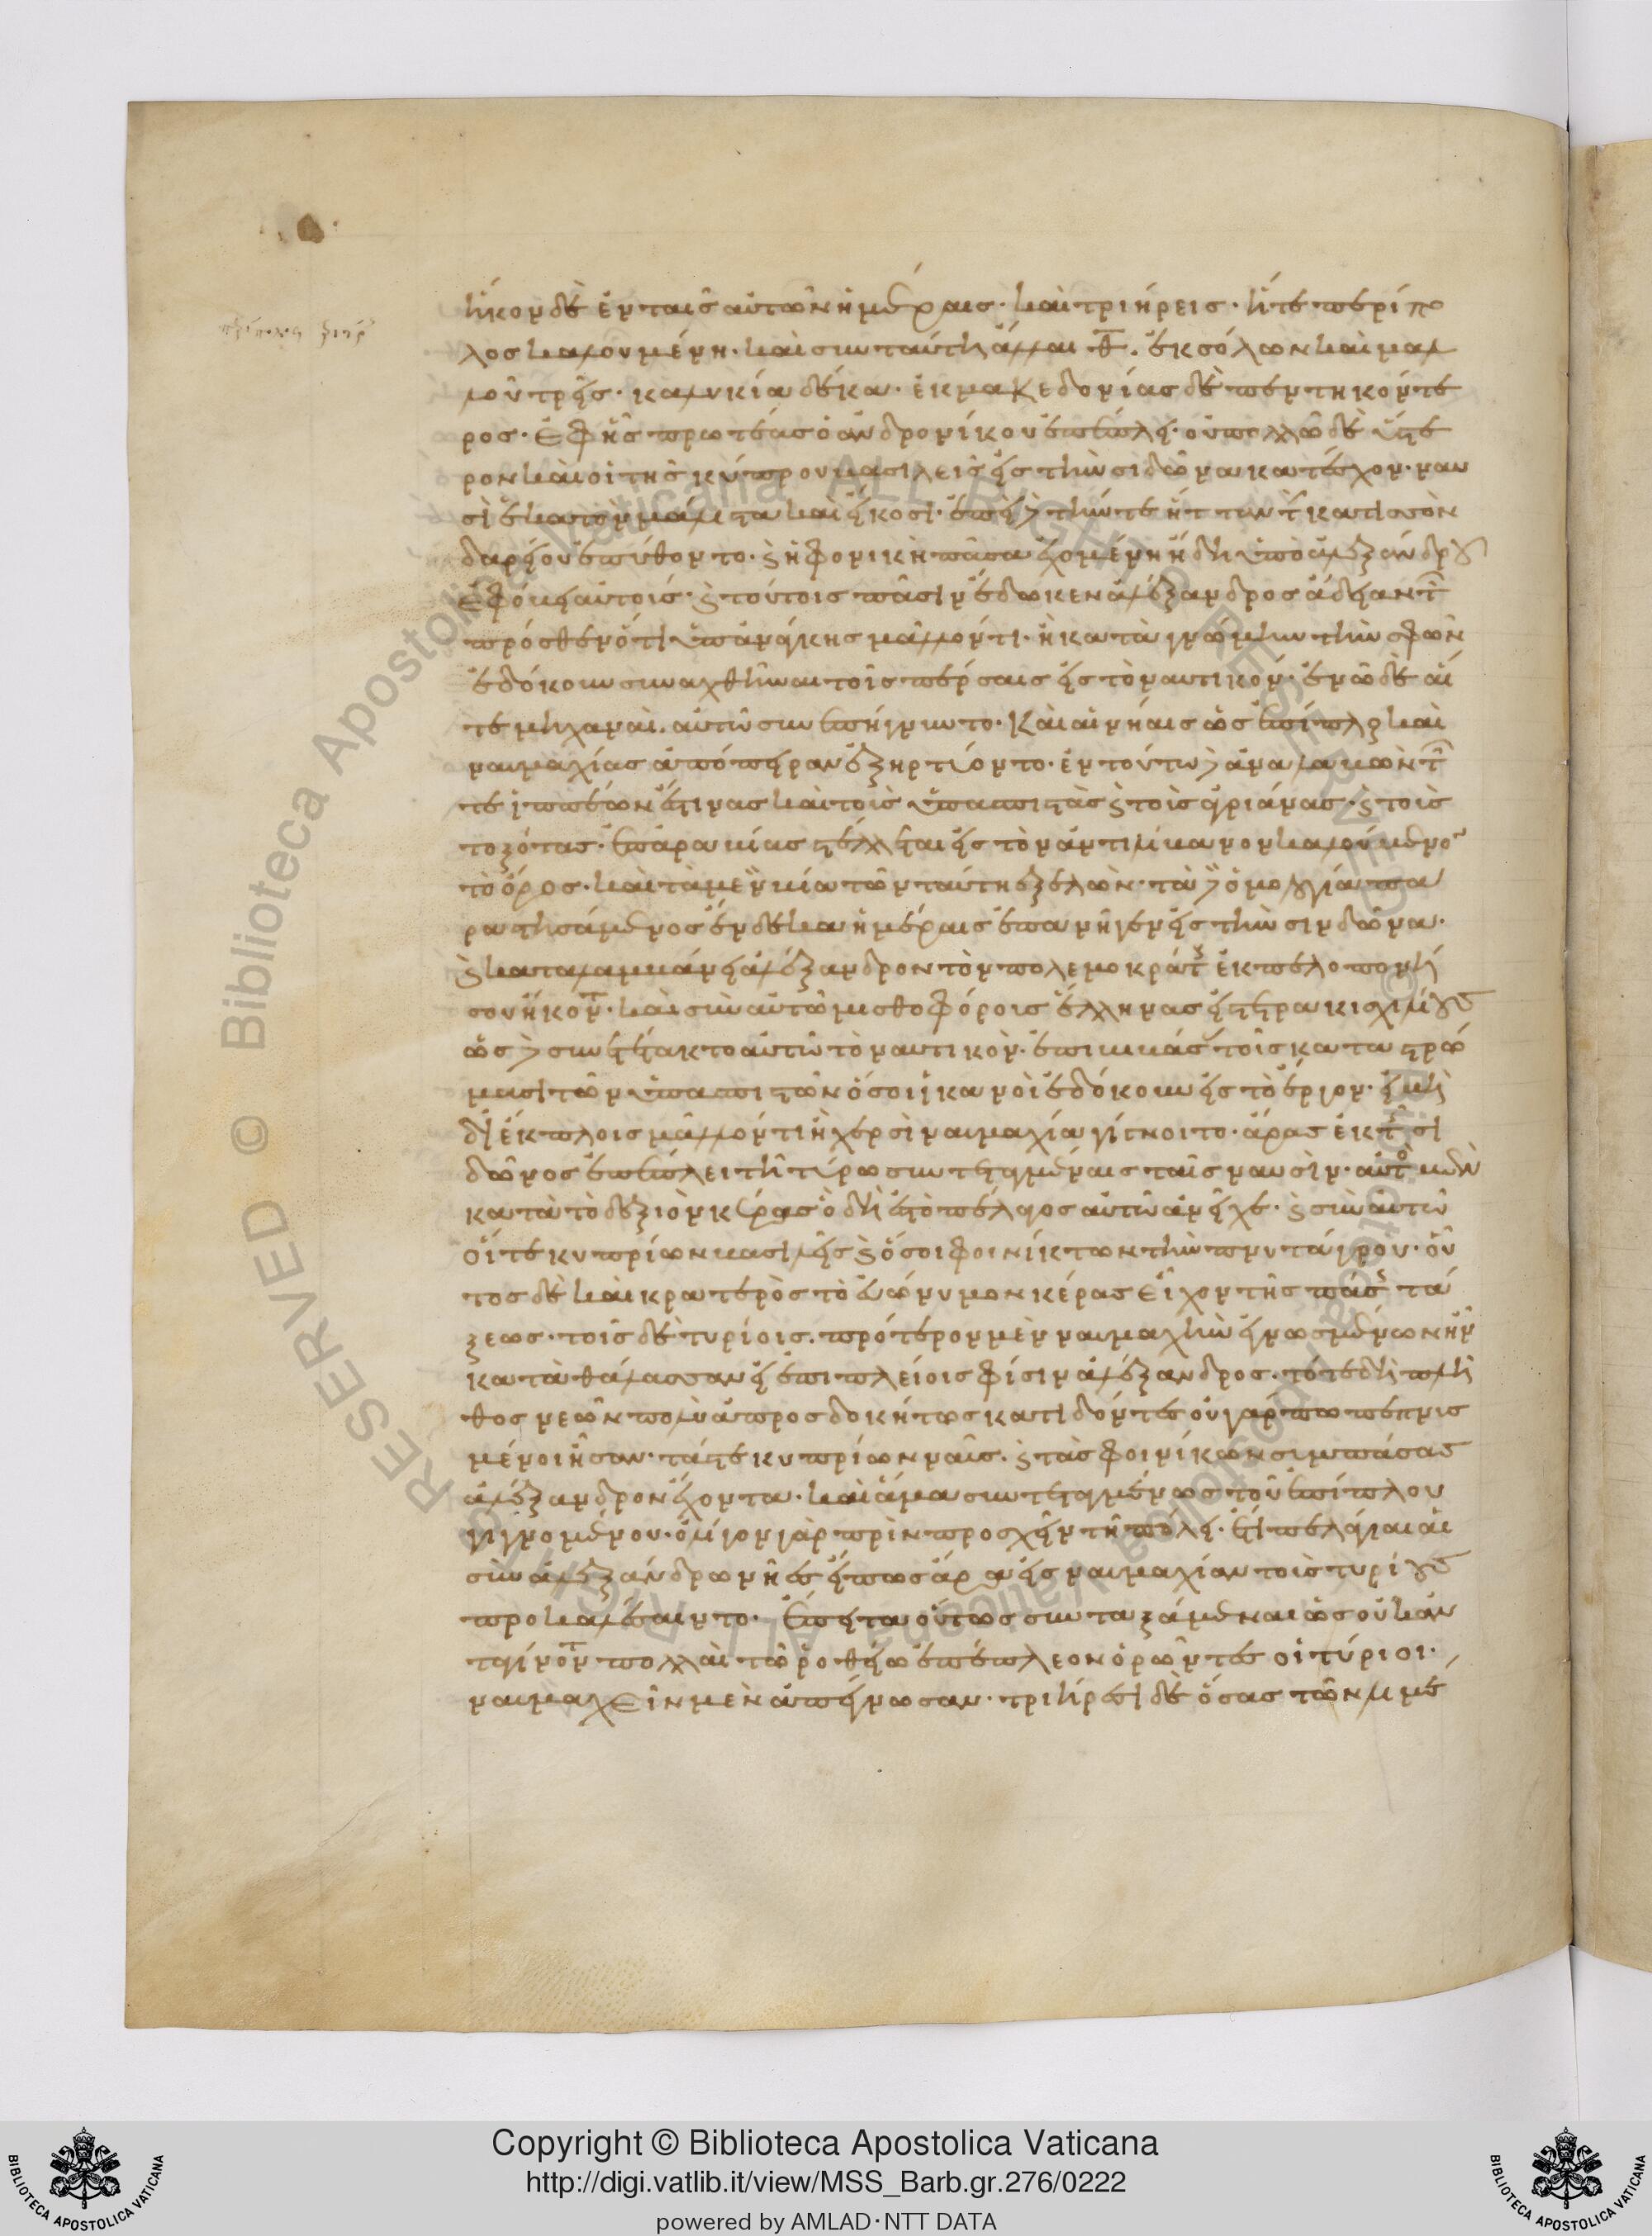 ἧκον δὲ ἐν ταῖς αὐτῶν ἡμέραις· καὶ τριήρεις· ἥ τε περίπο
λος καλουμένη· καὶ σὺν ταύτη ἄλλαι θ̅· ἐκ σόλων καὶ μαλ
λοῦ τρεῖς· καὶ λυκία δέκα· ἐκ μακεδονίας δὲ πεντηκόντε
ρος· ἐφῆς πρωτέας ὁ ἀνδρονίκου ἐπέπλει· οὐ πολλῶ δὲ ὕστε
ρον καὶ οἱ τῆς κύπρου βασιλεῖς ἐς τὴν σιδῶνα κατέσχον· ναυ
σὶ ἑκατὸν μάλιστα καὶ εἴκοσι· ἐπεὶ δὲ τήν τε ἧτταν τ̂ κατισσὸν
δαρείου ἐπύθοντο· καὶ ἡ φοινίκη πᾶσα ἐχομένη ἤδη ὑπὸ ἀλεξάνδρου
ἐφόβει αὐτοίς· καὶ τούτοις πᾶσιν ἔδωκεν ἀλέξανδρος ἄδειαν τ̂
πρόσθεν ὅτι ὑπανάγκης μᾶλλόν τι· ἢ κατὰ γνώμην τὴν σφῶν
ἐδόκουν συναχθῆναι τοῖς πέρσαις ἐς τὸ ναυτικόν· ἐν ῶ δὲ αἵ
τε μηχαναὶ αὐτῶ συνεπήγνυντο· καὶ αἱ νῆαις ὡς ἐπίπλουν καὶ
ναυμαχίας ἀπόπειραν ἐξηρτύοντο· ἐν τούτω δὲ ἀναλαβὼν τ̂
τε ἱππέων ἔστινας καὶ τοὶς ὑπασπιστὰς καὶ τοὶς ἀγριάνας· καὶ τοὶς
τοξότας· ἐπάραβίας στέλλεται ἐς τὸν ἀντιλίβανον καλούμενον
τὸ ὄρος· καὶ τὰ μὲν βία τῶν ταύτη ἐξελῶν· τὰ δὲ ὁμολογία πα
ραστησάμενος ἐν δέκα ἡμέραις ἐπανῆγεν ἐς τὴν σινδῶνα·
καὶ καταλαμβάνει ἀλέξανδρον τὸν πολεμοκράτους ἐκ πελοπονή
σου ἥκοντ· καὶ σὺν αὐτῶ μισθοφόροις ἕλληνας ἐς τετρακισχιλίους
ὡς δὲ συνετέτακτο αὐτῶ τὸ ναυτικὸν· ἐπιβιβάσας τοῖς καταστρώ
μασι τῶν ὑπασπιστῶν ὅσοι ἱκανοὶ ἐδόκουν ἐς τὸ ἔργον· εἰ μὴ
διέκπλοις μᾶλλόν τι ἢ χερσὶ ναυμαχία γίγνοιτο· ἄρας ἐκ τῆς σι
δῶνος ἐπέπλει τῆ τύρω συντεταγμέναις ταῖς ναυσὶν· αὐτὸς μὲν
κατὰ τὸ δεξιὸν κέρας ὃ δὴ ἐς τὸ πέλαγος αὐτῶ ἀνεῖχε· καὶ σὺν αὐτῶ
οἵ τε κυπρίων βασιλεῖς καὶ ὅσοι φοινίκτων τὴν πρυταγόρου· οὗ
τος δὲ καὶ κρατερὸς τὸ εὐώνυμον κέρας εἶχον τῆς πάσης τά
ξεως· τοῖς δὲ τυρίοις· πρότερον μὲν ναυμαχὴν ἐγνωσμένων ἦν
κατὰ θάλασσαν εἰ ἐπιπλείοι σφίσιν ἀλέξανδρος· τότε δὴ πλῆ
θος νεῶν πολὺ ἀπροσδοκήτως κατιδόντες οὐ γάρ πω πεπυσ
μένοι ἦσαν· τάς τε κυπρίων ναῦς· καὶ τὰς φοινίκων συμπάσας
ἀλέξανδρον ἔχοντα· καὶ ἅμα συντεταγμένως τοῦ ἐπίπλου
γιγνομένου· ὀλίγον γὰρ πρὶν προσχεῖν τῆ πόλει· ἔτι πελάγιαι αἱ
σὺν ἀλεξάνδρω νῆες εἴ πως ἄρα ἐς ναυμαχίαν τοὶς τυρίους
προκαλέσαιντο· ἔπειτα οὕτως συνταξάμεναι ὡς οὐκ ἀν
τανήγοντ πολλαὶ τῶ ῥοθείω ἐπέπλεον ὁρῶντες οἱ τύριοι·
ναυμαχεῖν μὲν ἀπέγνωσαν· τριήρεσι δὲ ὅσας τῶν λιμέ
Copyright © Biblioteca Apostolica Vaticana
http://digi.vatlib.it/view/MSS_Barb.gr.276/0222
powered by AMLAD·NTT DATA